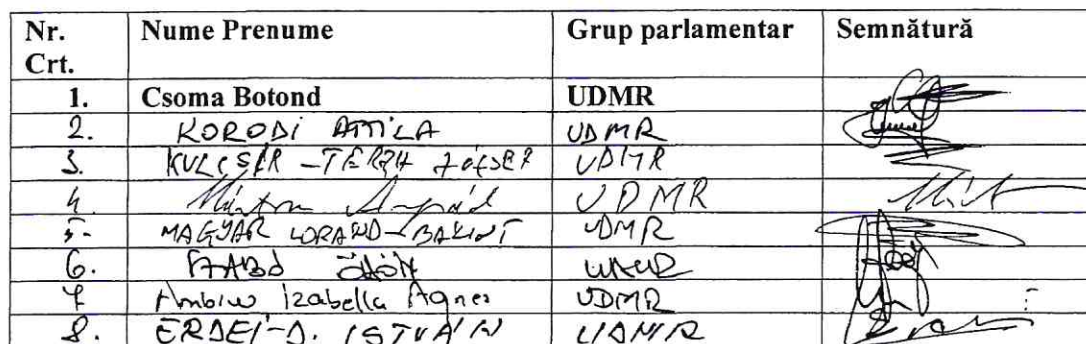 Nr. Crt. Nume Prenume Grup parlamentar Semnătură
1. Csoma Botond UDMR
2. KORODI ATTILA UDMR
3. KULCSÁR-TERZA JÓZSEF UDMR
4 Márton Árpád UDMR
5. MAGYAR LORAND-BALINT UDMR
6. SZABÓ ÖDÖN UDMR
7 Ambrus Izabella Agnes UDMR
8. ERDEI-D. ISTVÁN UDMR